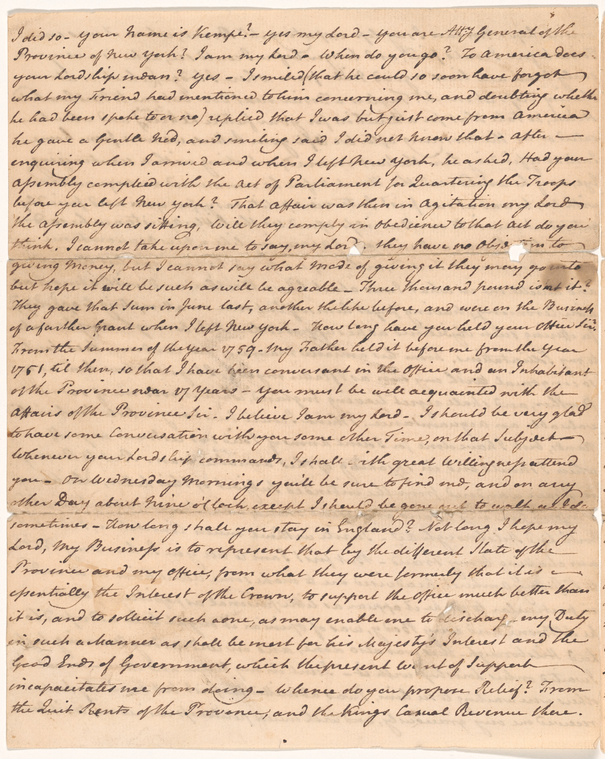 I did so - your Name is Kempe? - yes my Lord - you are Atty General of the
Province of New York? I am my Lord - When do you go? To America does
your Lordship mean? yes - I smiled (that he could so soon have forgot
what my Friend had mentioned to him concerning me, and doubting whether
he had been spoke to or no) replied that I was but just come from America
he gave a Gentle Nod, and smiling said I did not know that - After
enquiring when I arrived and when I left New York, he asked, Had your
Assembly complied with the Act of Parliament for Quartering the Troops
before you left New York? That Affair was then in Agitation my Lord
the Assembly was sitting, Will they comply in Obedience to that Act do you
think, I cannot take upon me to say, my Lord, they have no Objection to
giving Money, but I cannot say what Mode of giving it they may go into
but hope it will be such as will be agreable - Three thousand pound isnt it?
They gave that Sum in June last, another the like before, and were on the Business
of a farther Grant when I left New York - How long have you held your Office Sir?
From the Summer of the year 1759 - My Father held it before me from the year
1751, til then, so that I have been conversant in the Office and an Inhabitant
of the Province near 17 Years - you must be well acquainted with the
Affairs of the Province Sir - I believe I am my Lord - I should be very glad
to have some Conversation with you some other Time, on that Subject -
Whenever your Lordship commands, I shall with great Willingness attend
you - On Wednesday Mornings youle be sure to find me, and on any
other Day about Nine o'Clock, except I should be gone out to walk, as I do
sometimes - How long shall you stay in England? Not long I hope my
Lord, My Business is to represent that by the different State of the
Province and my Office, from what they were formerly that it is
essentially the Interest of the Crown, to support the Office much better than
it is, and to sollicit such a one, as may enable me to discharge my Duty
in such a Manner as shall be most for his Majesty's Interest and the
Good Ends of Government, which the present Want of Support
incapacitates me from doing - Whence do you propose Relief? From
the Quit Rents of the Province, and the Kings Casual Revenue there.